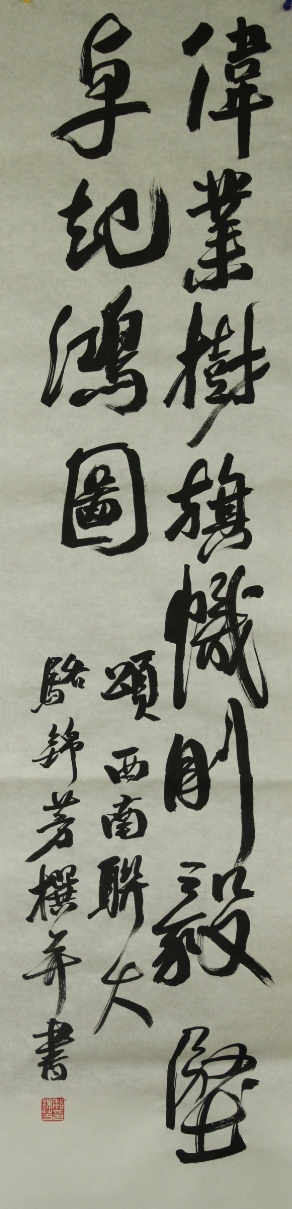 偉業樹旗幟剛毅堅
卓起鴻圖
頌西南聯大
駱錦芳撰并書